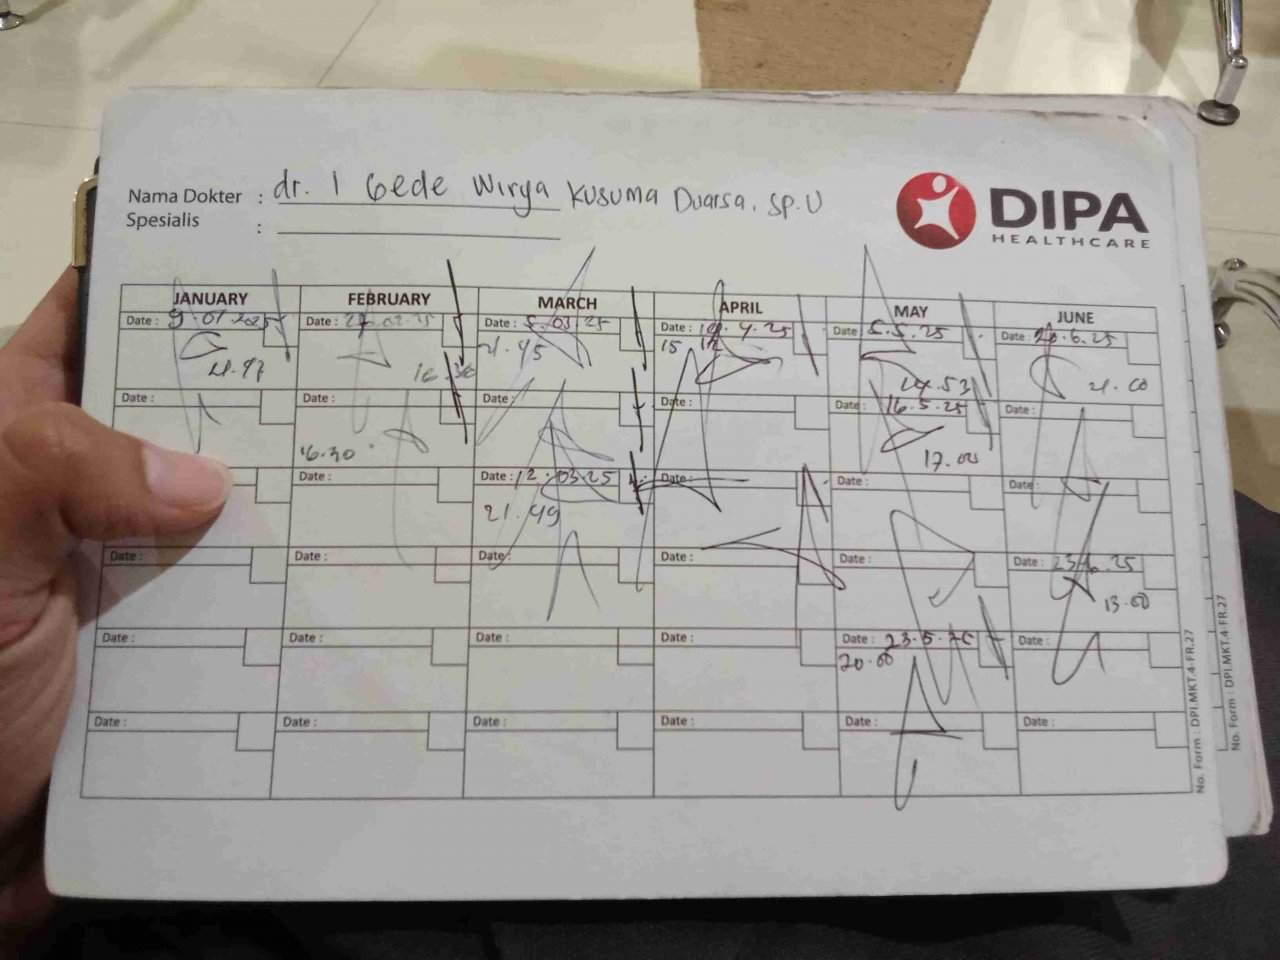 Nama Dokter : dr. I Gede Wirya Kusuma Duarsa. Sp.U
Spesialis :
DIPA
HEALTHCARE
JANUARY FEBRUARY MARCH APRIL MAY JUNE
Date : 9.01.2025 Date : 27.02.25 Date : 5.03.25 Date : 4.25 Date : 5.5.25 Date : 6.25
21.45 15
16.30 14.53 21.00
Date : Date : Date : Date : Date : 16.5.25 Date :
17.00
Date : Date : 12.03.25 Date : Date : Date :
21.49
Date : Date : Date : Date : Date : Date : 23.6.25
13.00
Date : Date : Date : Date : Date : 23.5.25 Date :
20.00
Date : Date : Date : Date : Date : Date :
No. Form : DPI.MKT.4-FR.27
No. Form : DPI.MKT.4-FR.27